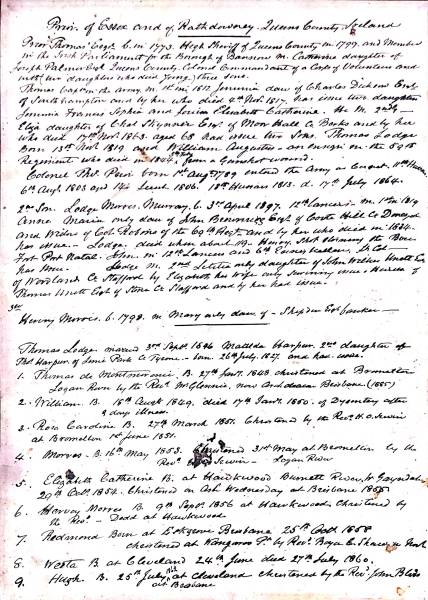 Prior of Essex and of Rathdowney - Queens County, Ireland
Prior Thomas Esqre b. in 1773. High Sheriff of Queens County in 1799. and Member
in the Irish Parliament for the Borough of Bannow m. Catherine daughter of
Joseph Palmer Esqr Queens County. Colonel Commandant of a Corps of Volunteers and
with two daughters who died young, three sons.
Thomas Capt in the army. m. 1st in 1812 Jemima daur of Charles Dickson Esqr
of Southampton and by her who died 4th Novr 1817. has issue two daughters
Jemima Frances Sophia and Louisa Elizabeth Catherine. He m. 2ndly
Eliza daughter of Chas Skynner Esqr of Moor Hall Co Berks and by her
who died 17th Novr 1863. aged 68 had issue two Sons. Thomas Lodge
Born 13th Novr 1819 and William Augustus - an ensign in the 59th
Regiment who died in from a Gunshot wound.
Colonel Thos Prior born 1st Augt 1789 entered the Army as Cornet. 11th Hussars
6th Augt 1803 and 14th 1806. 18th Hussars 1813. d. 17th July 1864.
2nd Son. Lodge Morres. Murray. b. 3rd April 1797. 12th Lancers. m. 1st in 1819
Anna Maria only daur of John Esqr of Coote Hill Co
and Widow of Col of the 69th Regt and by her who died in 1824.
has issue. - Lodge. died when about 19. Henry. Shot the
Fort Port Natal. John in 12th Lancers and 6th
has issue. Lodge m. 2nd Letitia only daughter of John Wilkes Unett Esqr
of Woodlands Co Stafford by Elizabeth his wife only surviving issue & Heiress of
Thomas Unett Esqr of Stone Co Stafford and by her had issue.
3rd
Hervey Morres. b. 1798. m. Mary only daur of - Shipden Esqr banker -
Thomas Lodge married 3rd Septr 1846 Matilda Harpur. 2nd daughter of
Thos Harpur of Lime Park Co Tyrone - born 26th July 1827 and had issue.
1. Thomas de Montmorenci. B. 27th Janry 1848 christened at Bromelton
Logan River by the Revd Mr Glennie. now Archdeacon Brisbane (1885)
2. William. B. 18th Augt 1849. died 17th Janry 1850. of Dysentery after
9 day illness.
3. Rosa Caroline B. 27th March 1851. Christened by the Revd H. O. Irwin
at Bromelton 1st June 1851.
4. Morres. B. 16th May 1853. Christened 31st May at Bromelton by the
Revd Irwin - Logan River
5. Elizabeth Catherine B. at Hawkwood Burnett River Nr Gayndah
29th Octr 1854. Christened on Ash Wednesday at Brisbane 1855
6. Hervey Morres B. 9th Septr 1856 at Hawkwood. Christened by
the Revd - Dodd at Hawkwood
7. Redmond Born at Brisbane 25th Octr 1858
christened at Kangaroo Pt. by Revd
8. Westa B. at Cleveland 24th June died 27th July 1860.
9. Hugh. B. 25th July at Cleveland christened by the Revd John Bliss
at Brisbane